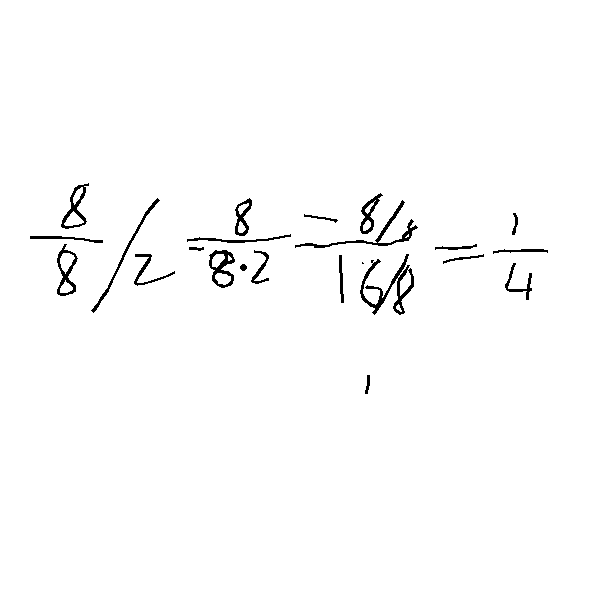 8/8 / 2 = 8/(8·2) = (8/8)/(16/8) = 1/4